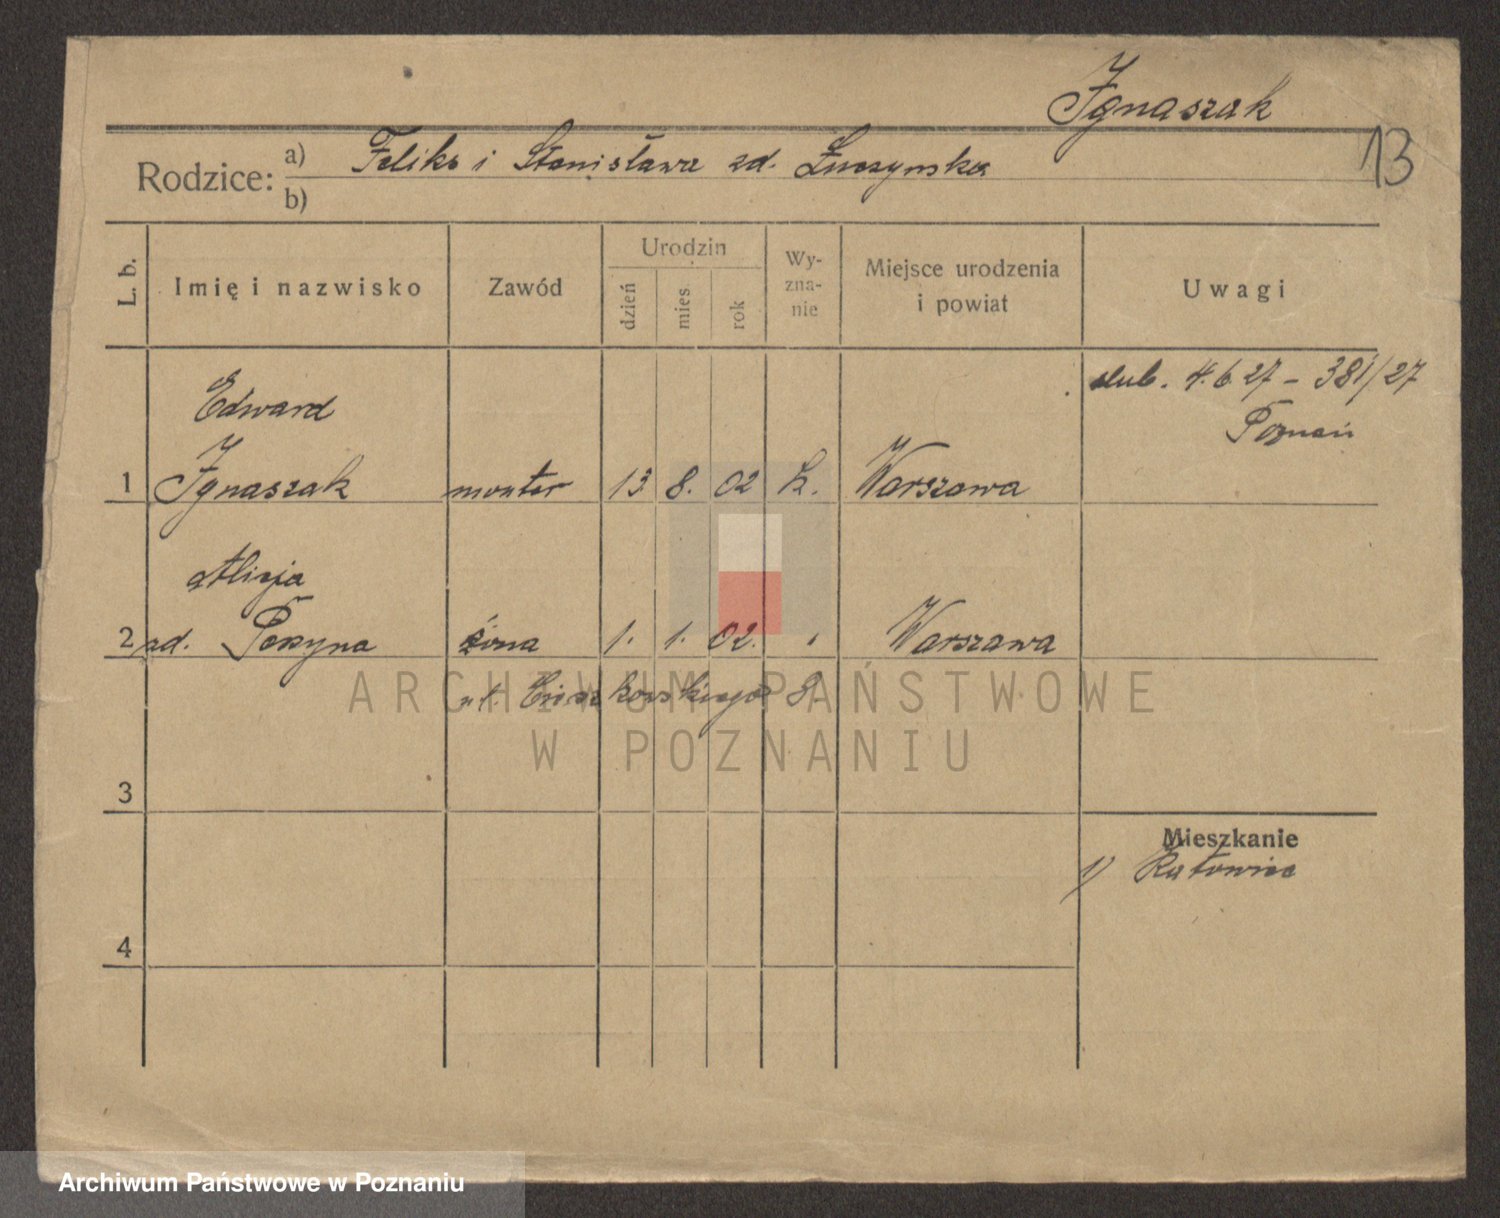 Ignaszak
13
Rodzice: a) Feliks i Stanisława zd. Łuczyńska
b)
L. b.
Imię i nazwisko
Zawód
Urodzin
dzień
mies.
rok
Wy-
zna-
nie
Miejsce urodzenia
i powiat
Uwagi
ślub. 4.6 27 – 381/27
Poznań
Edward
1 Ignaszak monter 13 8. 02 k. Warszawa
Alicja
2 zd. żona 1. 1. 02. Warszawa
ul. Cieszkowskiego 8
ARCHIWUM PAŃSTWOWE
W POZNANIU
3
Mieszkanie
1) Katowice
4
Archiwum Państwowe w Poznaniu